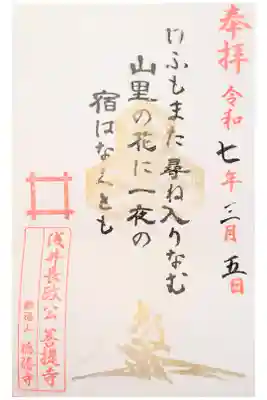 奉拝 令和七年三月五日
けふもまた尋ね入りなむ
山里の花に一夜の
宿はなくとも
浅井長政公菩提寺
徳勝寺